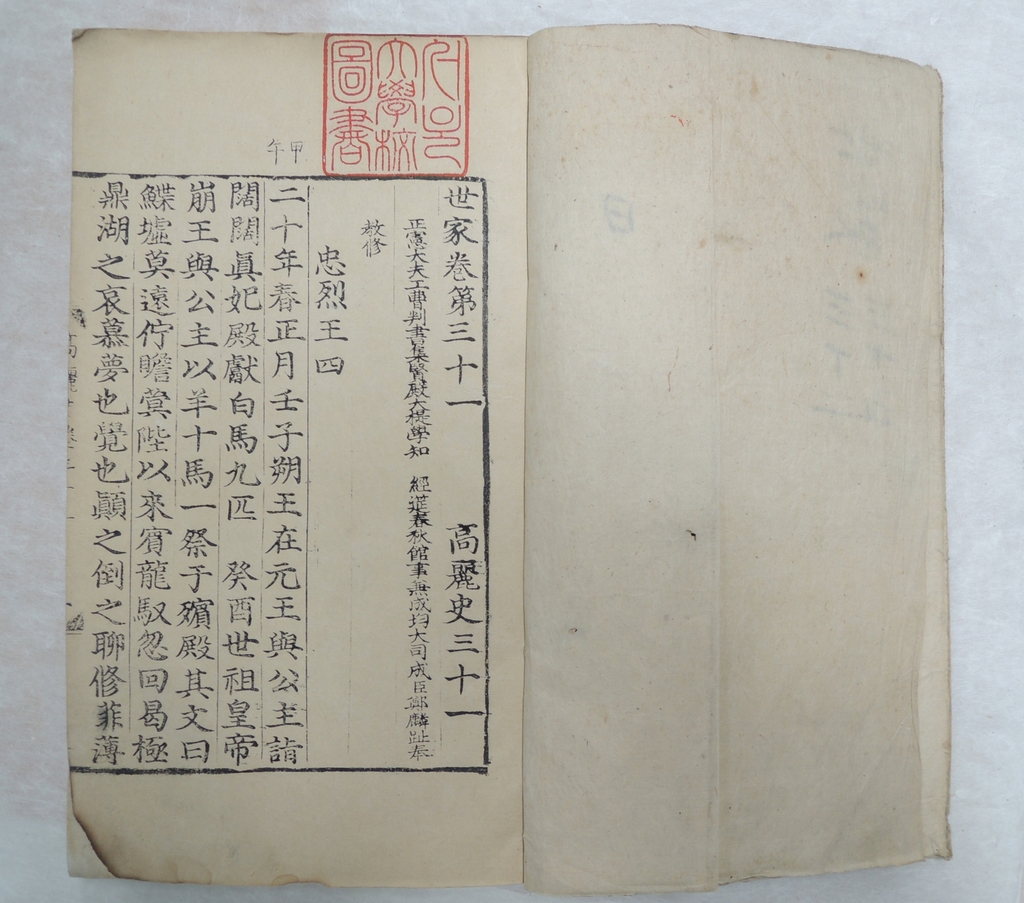 서울
大學校
圖書
甲午
世家卷第三十一 高麗史三十一
正憲大夫工曹判書集賢殿大提學知 經筵春秋館事兼成均大司成臣鄭麟趾奉
教修
忠烈王四
二十年春正月壬子朔王在元王與公主詣
闊闊眞妃殿獻白馬九匹 癸酉世祖皇帝
崩王與公主以羊十馬一祭于殯殿其文曰
鰈墟莫遠佇瞻蓂陛以來賓龍馭忽回曷極
鼎湖之哀慕夢也覺也顚之倒之聊修菲薄